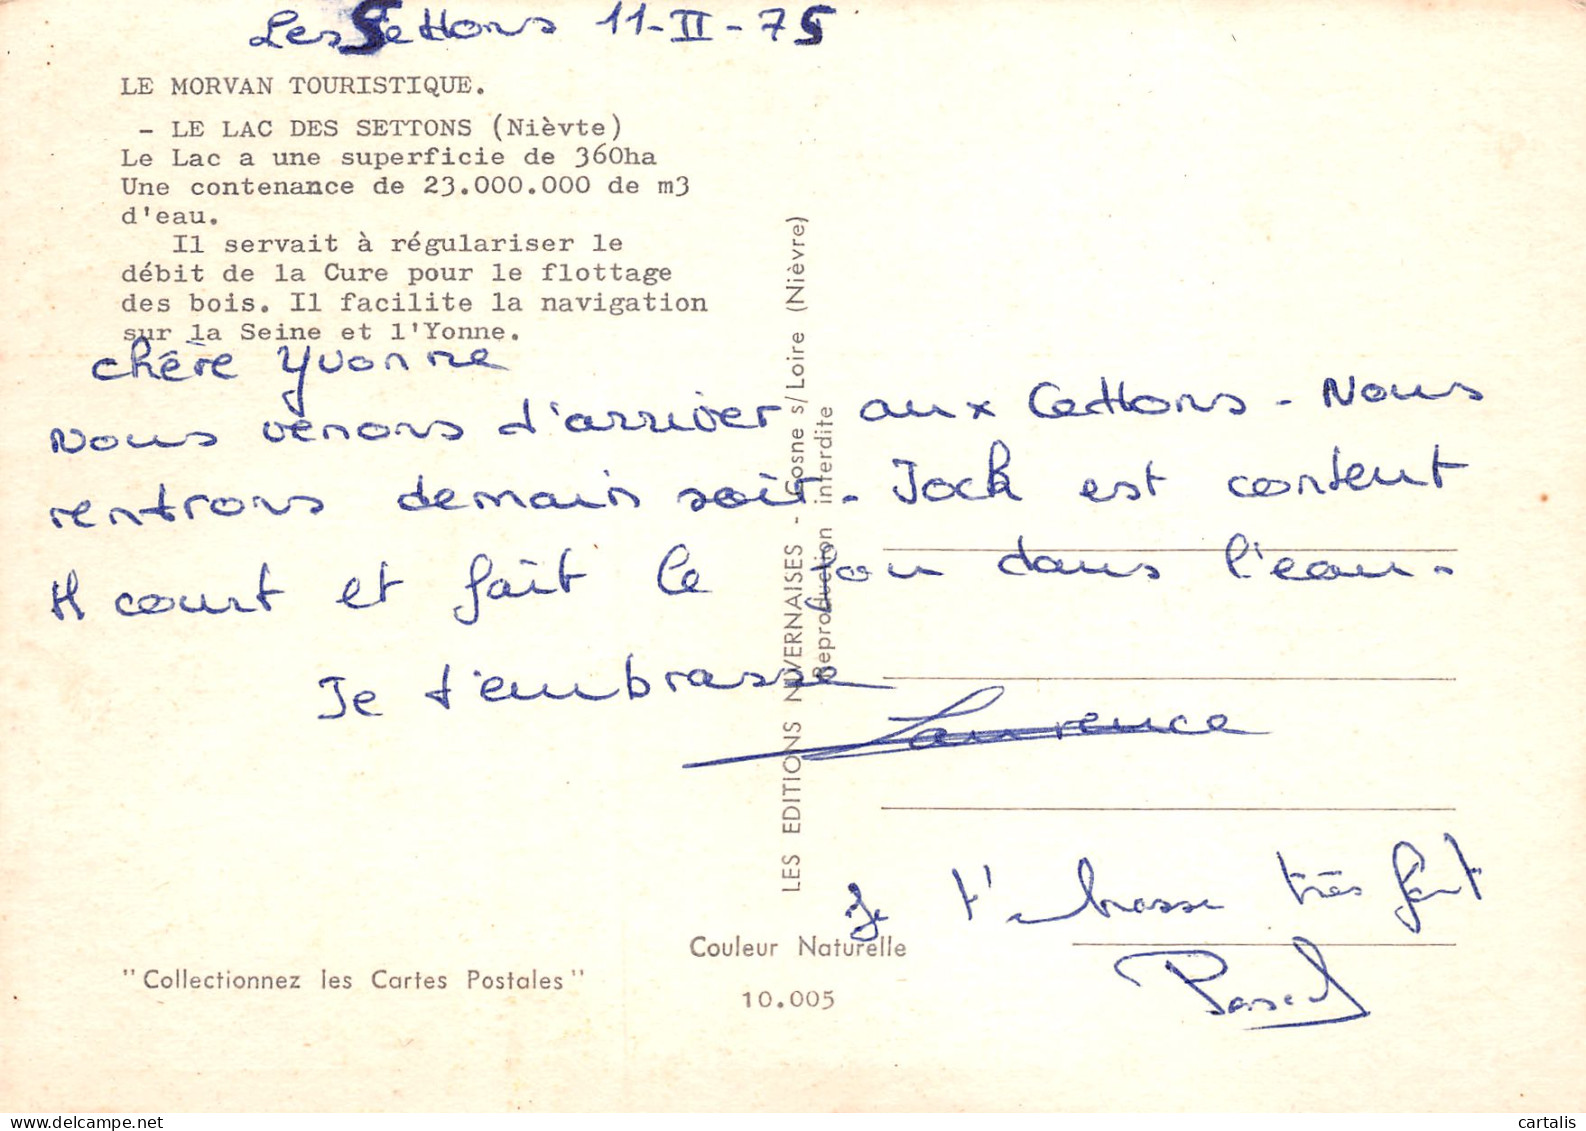 Les Settons 11-II-75
LE MORVAN TOURISTIQUE.
- LE LAC DES SETTONS (Nièvte)
Le Lac a une superficie de 360ha
Une contenance de 23.000.000 de m3
d'eau.
Il servait à régulariser le
débit de la Cure pour le flottage
des bois. Il facilite la navigation
sur la Seine et l'Yonne.
chère Yvonne
Nous venons d'arriver aux Cettons - Nous
rentrons demain soir. Jock est content
Il court et fait le fou dans l'eau.
Je t'embrasse
Laurence
Je t'embrasse très fort
Pascal
LES EDITIONS NIVERNAISES - Cosne s/Loire (Nièvre)
Reproduction interdite
Couleur Naturelle
10.005
"Collectionnez les Cartes Postales"
delcampe.net
cartalis